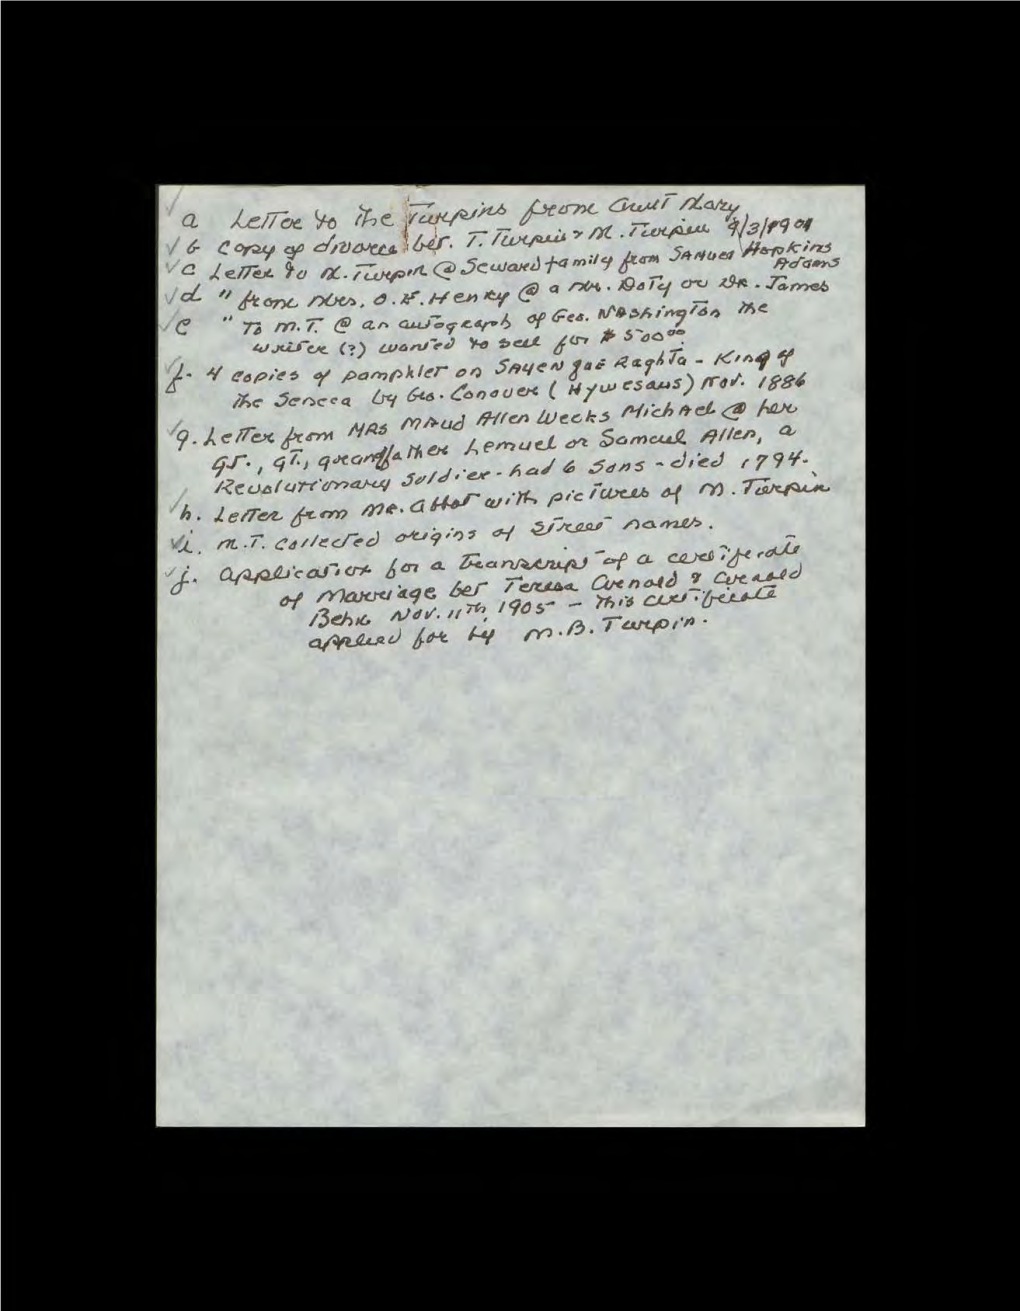 a Letter to the Turpins from Aunt Mary
b Copy of divorce bet. T. Turpin & M. Turpin 9/3/1901
c Letter to M. Turpin @ Seward family from Samuel Hopkins Adams
d " from Mrs. O. F. Henry @ a Mr. Doty or Dr. James
e " To M.T. @ an autograph of Geo. Washington the
writer (?) wanted to sell for $500.00
f. 4 copies of pamphlet on Sayengae Raghta - King of
the Seneca by Geo. Conover (Hywesaus) Nov. 1886
g. Letter from Mrs Maud Allen Weeks Michael @ her
gr., gt., grandfather Lemuel or Samuel Allen, a
Revolutionary Soldier - had 6 sons - died 1794.
h. Letter from Mr. Abbot with pictures of M. Turpin
i. M.T. collected origins of Street names.
j. Application for a transcript of a certificate
of Marriage bet Teresa Arnold & Arnold
Behn Nov. 11th, 1905 - This certificate
applied for by M.B. Turpin.